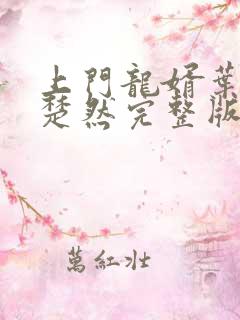 上門龍婿葉
楚然完整版
萬紅壯